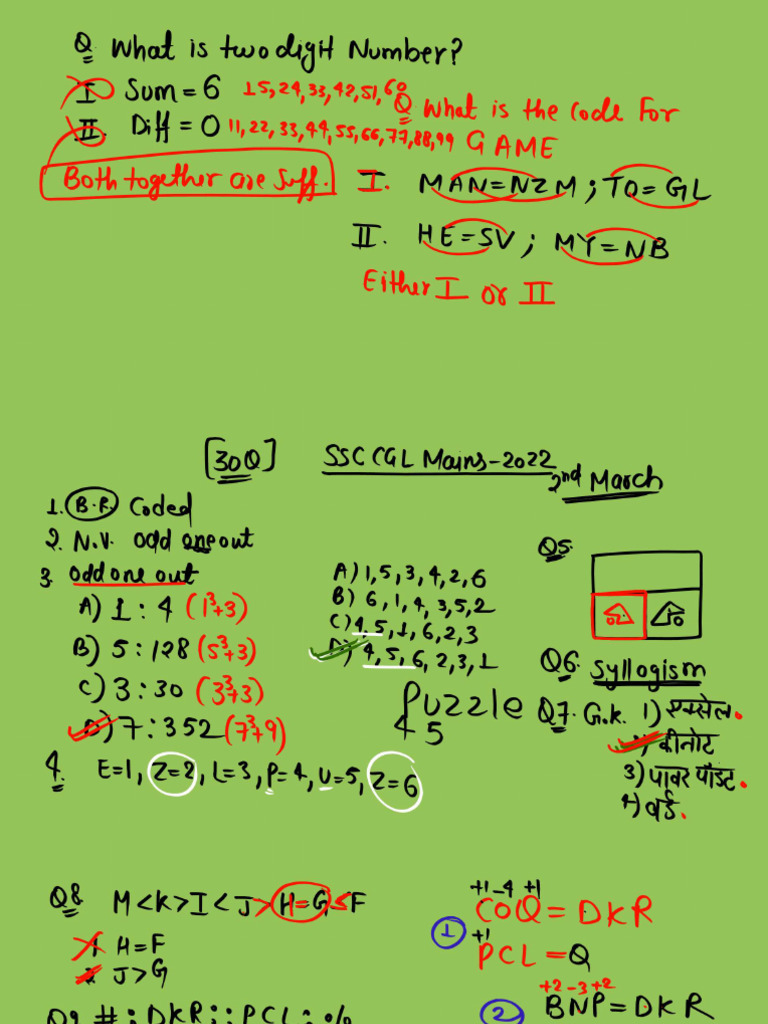 Q. What is two digit Number?
I Sum = 6 15, 24, 33, 42, 51, 60
II. Diff = 0 11, 22, 33, 44, 55, 66, 77, 88, 99
Both together are Suff.
Q What is the Code For
GAME
I. MAN = NZM ; TO = GL
II. HE = SV ; MY = NB
Either I or II
[30Q] SSC CGL Mains-2022
2nd March
1. B.R. Coded
2. N.V. odd one out
3. Odd one out
A) 1 : 4 (1³+3)
B) 5 : 128 (5³+3)
C) 3 : 30 (3³+3)
D) 7 : 352 (7³+9)
4. E=1, Z=2, L=3, P=4, U=5, Z=6
A) 1, 5, 3, 4, 2, 6
B) 6, 1, 4, 3, 5, 2
C) 4, 5, 1, 6, 2, 3
D) 4, 5, 6, 2, 3, 1
Puzzle
4 5
Q5.
Q6. Syllogism
Q7. G.K. 1) एक्सेल.
2) कीनोट
3) पावर पॉइंट.
4) वर्ड.
Q8 M<K>I<J>H=G≤F
1 H=F
2 J>G
+1 -4 +1
1 COQ = DKR
+1
PCL = Q
+2 -3 +2
2 BNP = DKR
Q9 # : DKR :: PCL : %